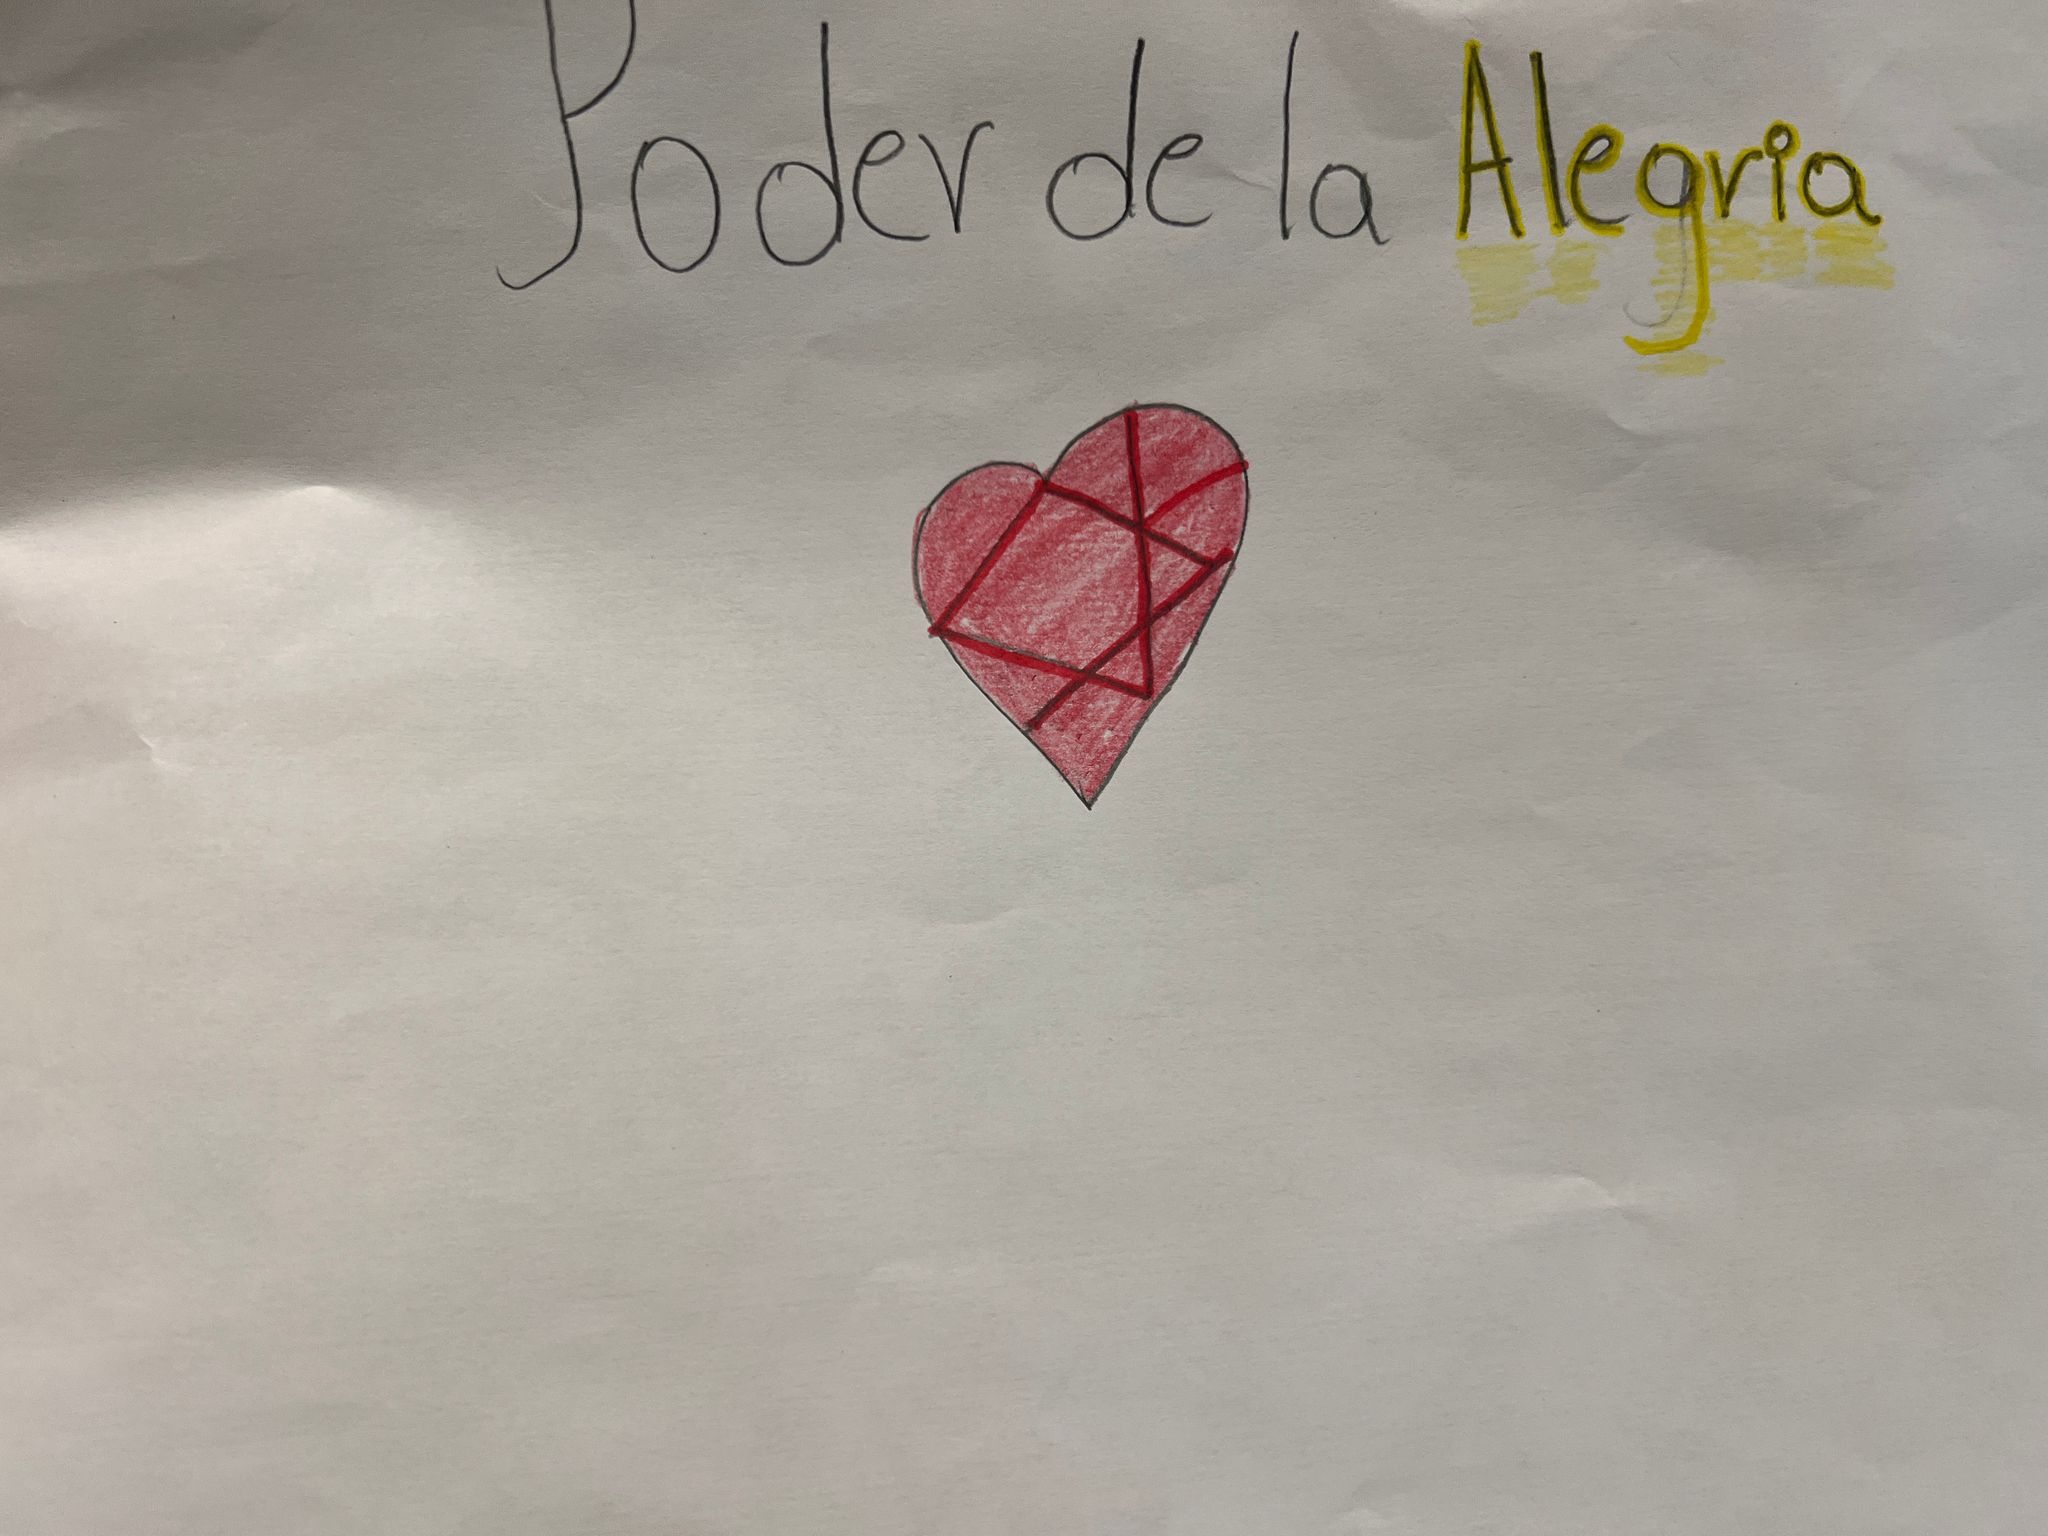 Poder de la Alegria